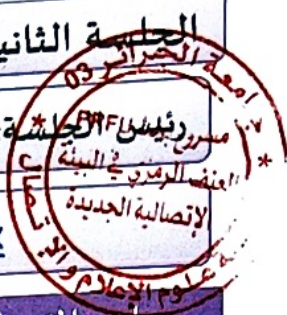 الجلسة الثانية
رئيس الجلسة
جامعة الجزائر 03
مشروع PRF
العنف الرمزي في البيئة
الإتصالية الجديدة
علوم الإعلام و الإتصال